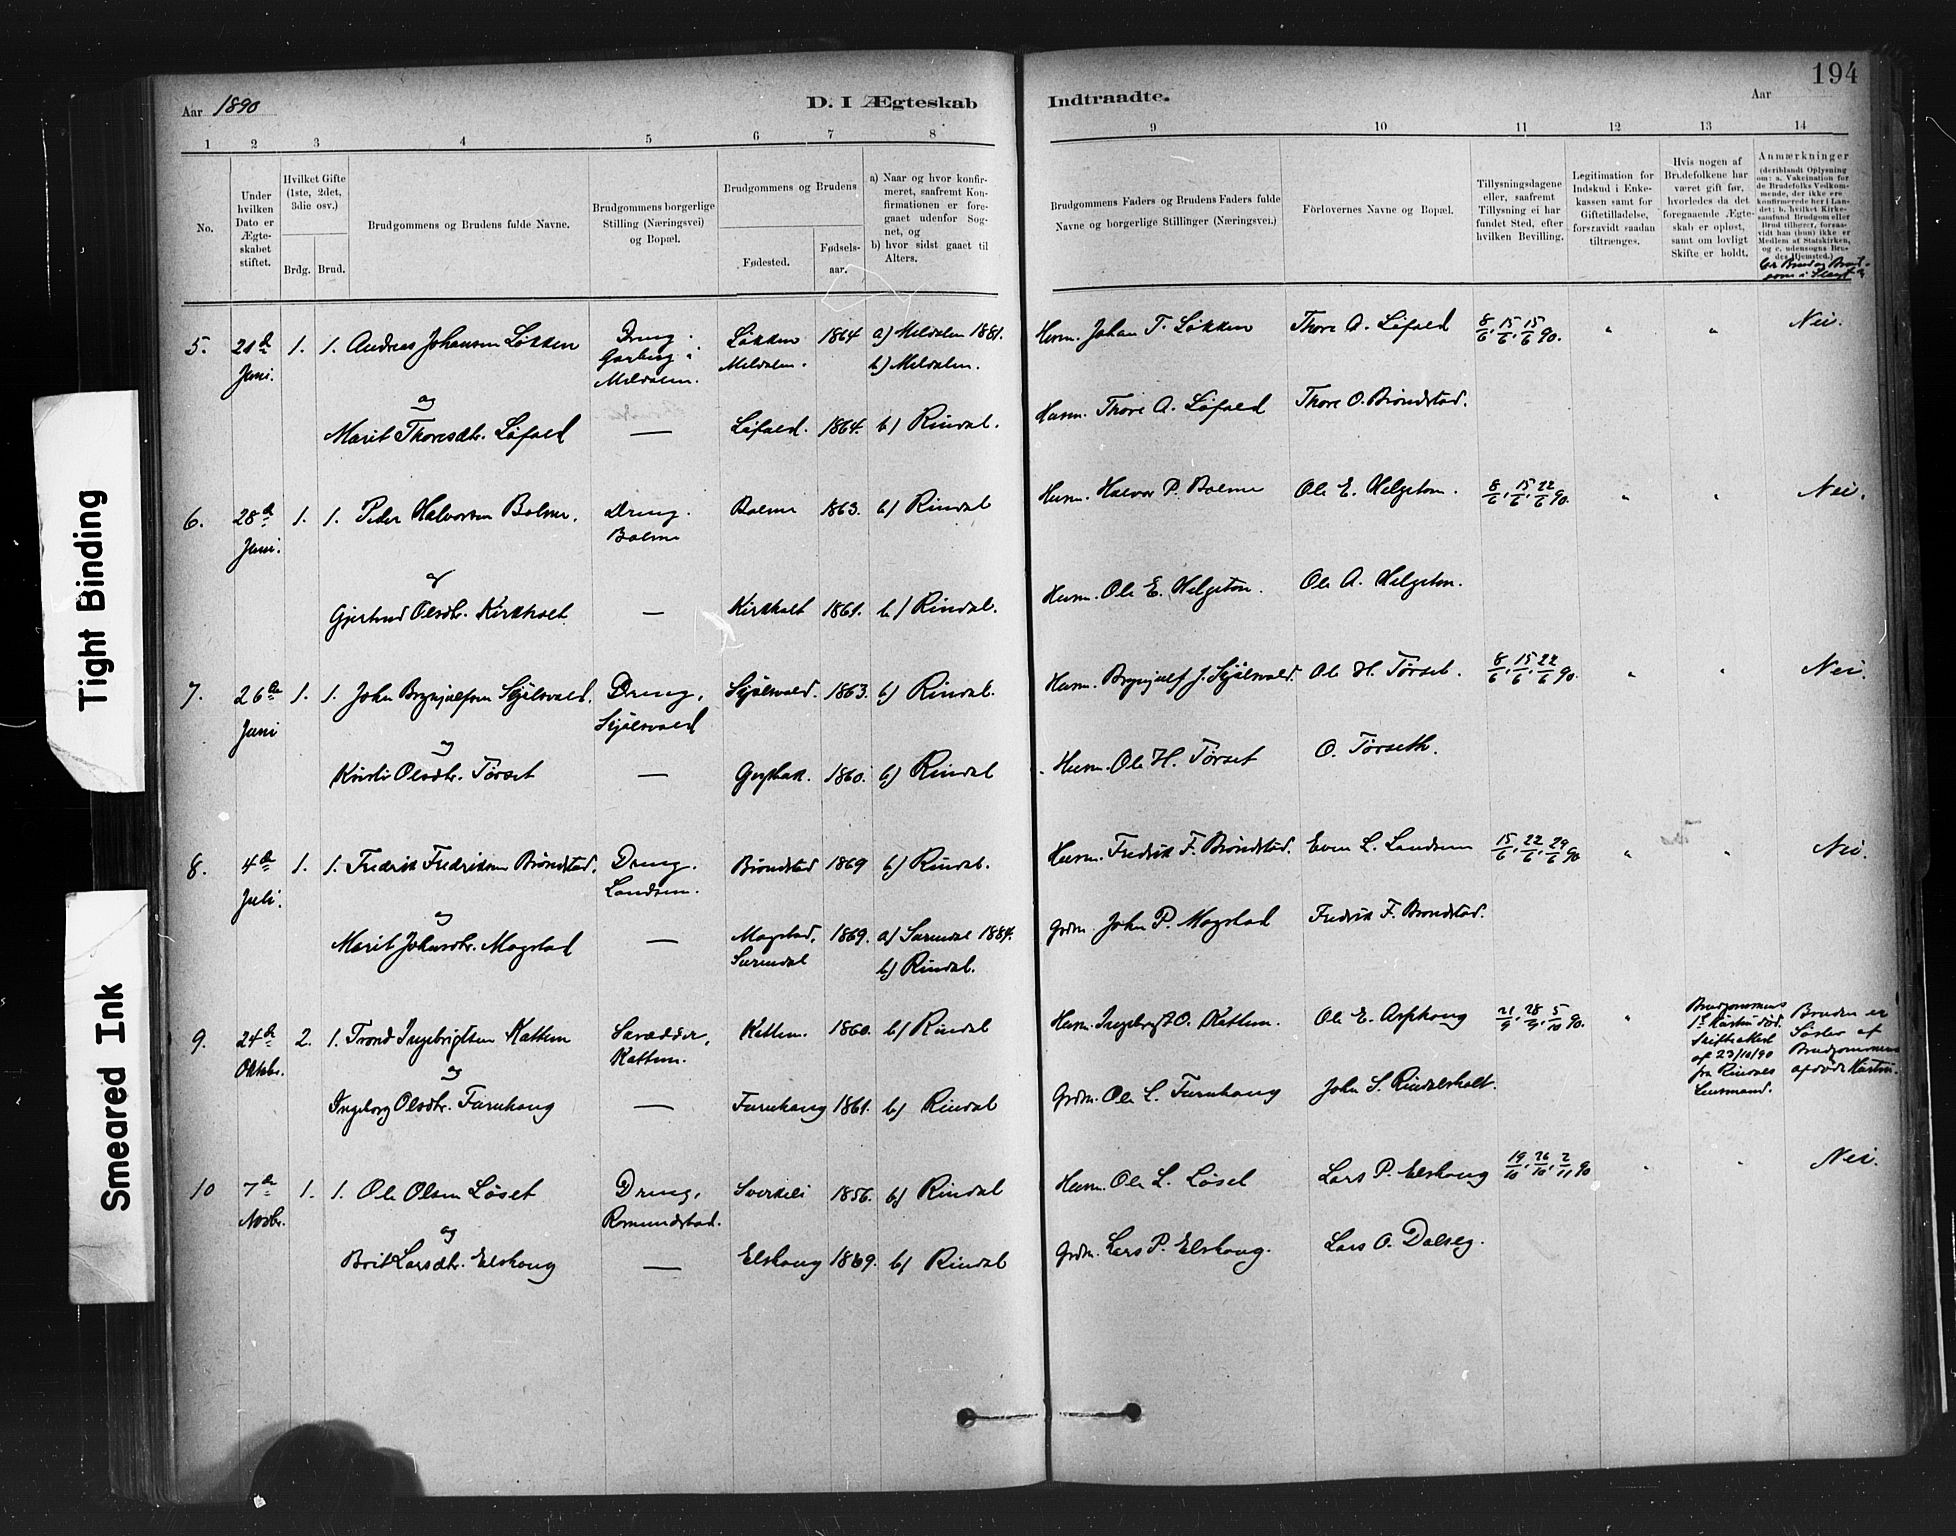 194
Aar 1890
D. I Ægteskab
Indtraadte.
Aar
1 2 3 4 5 6 7 8 9 10 11 12 13 14
No.
Under hvilken Dato er Ægteskabet stiftet.
Hvilket Gifte (1ste, 2det, 3die osv.)
Brdg. Brud.
Brudgommens og Brudens fulde Navne.
Brudgommens borgerlige Stilling (Næringsvei) og Bopæl.
Brudgommens og Brudens
Fødested.
Fødselsaar.
a) Naar og hvor konfirmeret, saafremt Konfirmationen er foregaaet udenfor Sognet, og
b) hvor sidst gaaet til Alters.
Brudgommens Faders og Brudens Faders fulde Navne og borgerlige Stillinger (Næringsvei.)
Forlovernes Navne og Bopæl.
Tillysningsdagene eller, saafremt Tillysning ei har fundet Sted, efter hvilken Bevilling.
Legitimation for Indskud i Enkekassen samt for Giftetilladelse, forsaavidt saadan tiltrænges.
Hvis nogen af Brudefolkene har været gift før, hvorledes da det foregaaende Ægteskab er opløst, samt om lovligt Skifte er holdt.
Anmærkninger (deriblandt Oplysning om: a. Vakcination for de Brudefolks Vedkommende, der ikke ere konfirmerede her i Landet; b. hvilket Kirkesamfund Brudgom eller Brud tilhører, forsaavidt han (hun) ikke er Medlem af Statskirken, og c. udensogns Brudes Hjemsted.)
Er Brud og Brudgom i Slægt
5. 21de Juni. 1. 1. Andreas Johansen Løkken Dreng. Garberg i Meldalen. Løkken Meldalen. 1864 a) Meldalen 1881. b) Meldalen. Husm. Johan T. Løkken Thore A. Løfald 8/6, 15/6, 15/6 90. " " Nei.
og
Marit Thoresdtr. Løfald — Løfald. 1864. b) Rindal. Husm. Thore A. Løfald Thore O. Brøndstad.
6. 28de Juni. 1. 1. Peder Halvorsen Bolme. Dreng. Bolme Bolme 1863. b) Rindal Husm. Halvor P. Bolme Ole E. Helgeton. 8/6, 15/6, 22/6 90. " " Nei.
og
Gjertrud Olsdtr. Kirkholt — Kirkholt 1861. b) Rindal. Husm. Ole E. Helgeton. Ole A. Helgeton.
7. 26de Juni 1. 1. John Brynjulfsen Skjølsvold. Dreng, Skjølsvold Skjølsvold. 1863. b) Rindal. Husm. Brynjulf J. Skjølsvold. Ole H. Tørset. 8/6, 15/6, 22/6 90. " " Nei.
og
Kristi Olsdtr. Tørset — 1860. b) Rindal Husm. Ole H. Tørset O. Tørseth.
8. 4de Juli. 1. 1. Fredrik Fredriksen Brøndstad. Dreng. Landsem. Brøndstad 1869 b) Rindal. Husm. Fredrik F. Brøndstad. Even L. Landsem 15/6, 22/6, 29/6 90 " " Nei.
og
Marit Johnsdtr. Mogstad — Mogstad, Surendal 1869. a) Surendal 1884. b) Rindal. Grdm. John P. Mogstad Fredrik F. Brøndstad.
9. 24de Oktbr. 2. 1. Trond Ingebrigtsen Kattem Kattem. Kattem. 1860. b) Rindal Husm. Ingebrigt O. Kattem. Ole E. Asphaug 21/9, 28/9, 5/10 90. "
Brudgommens 1ste Hustru død. Skifteattest af 23/10/90 fra Rindals Lensmand.
Bruden er Søster af Brudgommens afdøde Hustru.
og
Ingeborg Olsdtr. Furuhaug — Furuhaug 1861. b) Rindal Grdm. Ole L. Furuhaug John S. Rindalsholt.
10 7de Novbr. 1. 1. Ole Olsen Løset Dreng, Romundstad. Sverkeli 1856. b) Rindal Husm. Ole L. Løset Lars P. Elshaug 19/10, 26/10, 2/11 90 " " Nei.
og
Brit Larsdtr. Elshaug — Elshaug 1869. b) Rindal Grdm. Lars P. Elshaug. Lars O. Dalseg.
Tight Binding
Smeared Ink